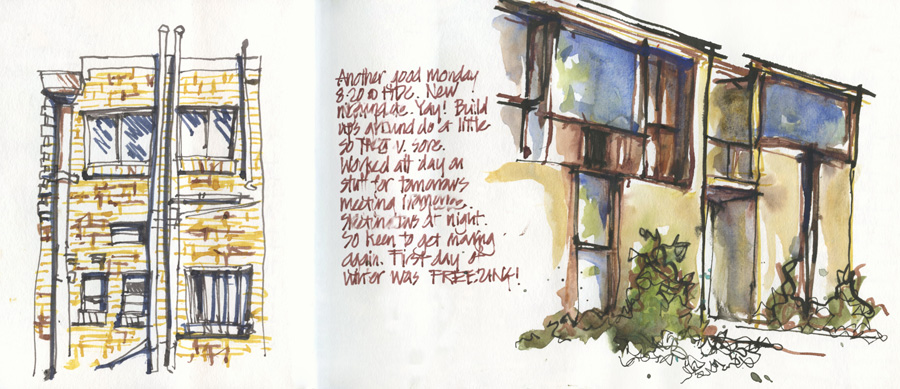 Another good monday
8.20 @ HDC. New
Yay! Build
ups around do a little
so v. sore.
Worked all day on
stuff for tomorrows
meeting
at night.
So keen to get making
again. First day of
winter was FREEZING!